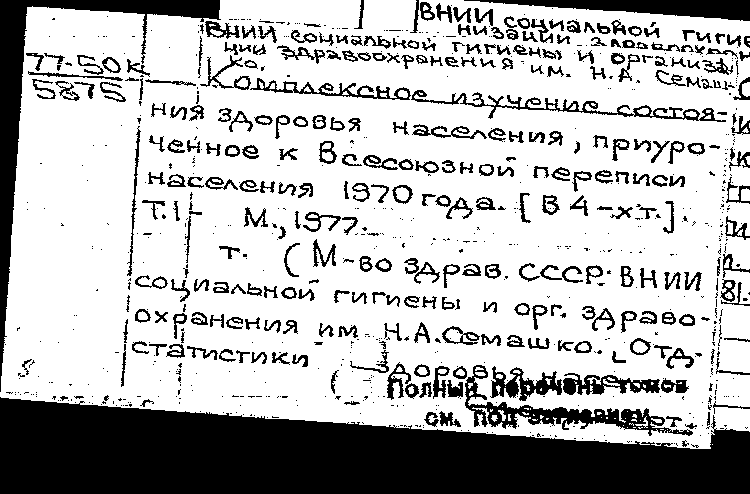 ВНИИ социальной гигие
низации здравоохран
ВНИИ социальной гигиены и организа
ции здравоохранения им. Н.А. Семаш
ко.
77-50к
5875
Комплексное изучение состоя-
ния здоровья населения, приуро-
ченное к Всесоюзной переписи
населения 1970 года. [В 4-х т.].
Т.1- М., 1977.
т. (М-во здрав. СССР. ВНИИ
социальной гигиены и орг. здраво-
охранения им. Н.А.Семашко. Отд.
статистики здоровья насе
Полный перечень томов
см. под заглавием
арт.
8
81.